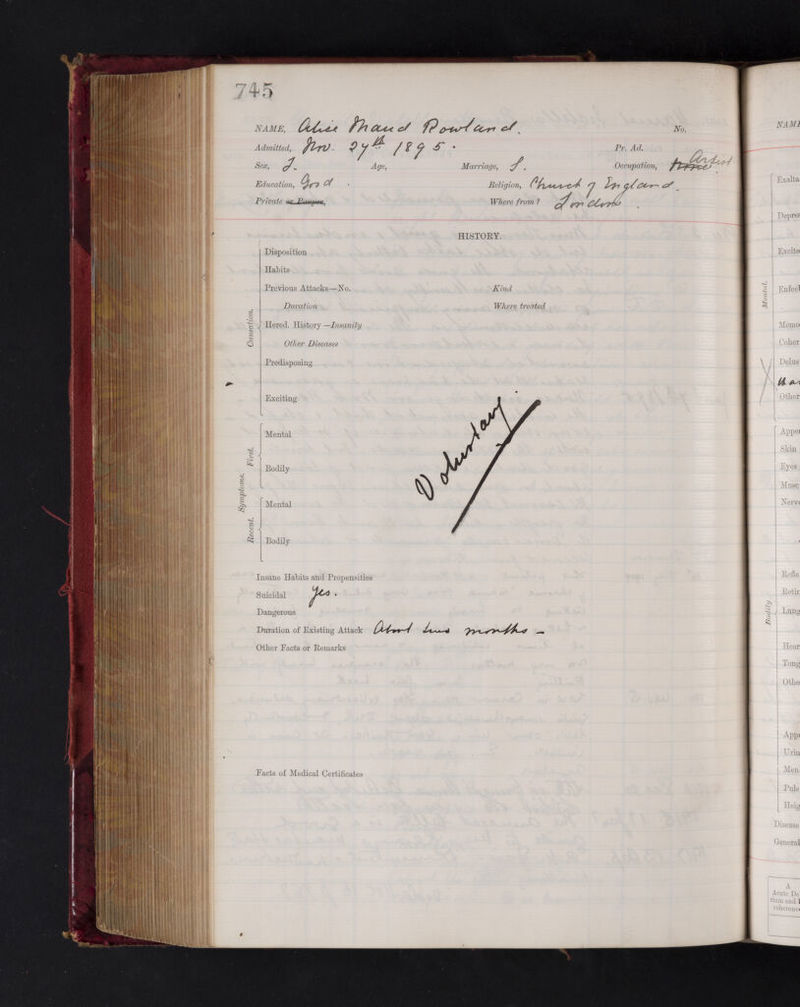 745
NAME, Alice Maud Rowland. No.
Admitted, Nov. 27th 1895. Pr. Ad.
Sex, F. Age, Marriage, S. Occupation, None Artist
Education, Good. Religion, Church of England.
Private or Pauper, Where from? London.
HISTORY.
Causation.
Disposition
Habits
Previous Attacks—No. Kind
Duration Where treated
Hered. History—Insanity
Other Diseases
Predisposing
Exciting
Voluntary
Symptoms.
First.
Mental
Bodily
Recent.
Mental
Bodily
Insane Habits and Propensities
Suicidal Yes.
Dangerous
Duration of Existing Attack About two months —
Other Facts or Remarks
Facts of Medical Certificates
NAME
Mental.
Exalta
Depres
Excite
Enfeeb
Memo
Coher
Delus
Other
Bodily
Appe
Skin
Eyes
Musc
Nerv
Refle
Retin
Lung
Hear
Tong
Othe
App
Urin
Men
Puls
Heig
Disease
General
A
Acute De
rium and I
coherence